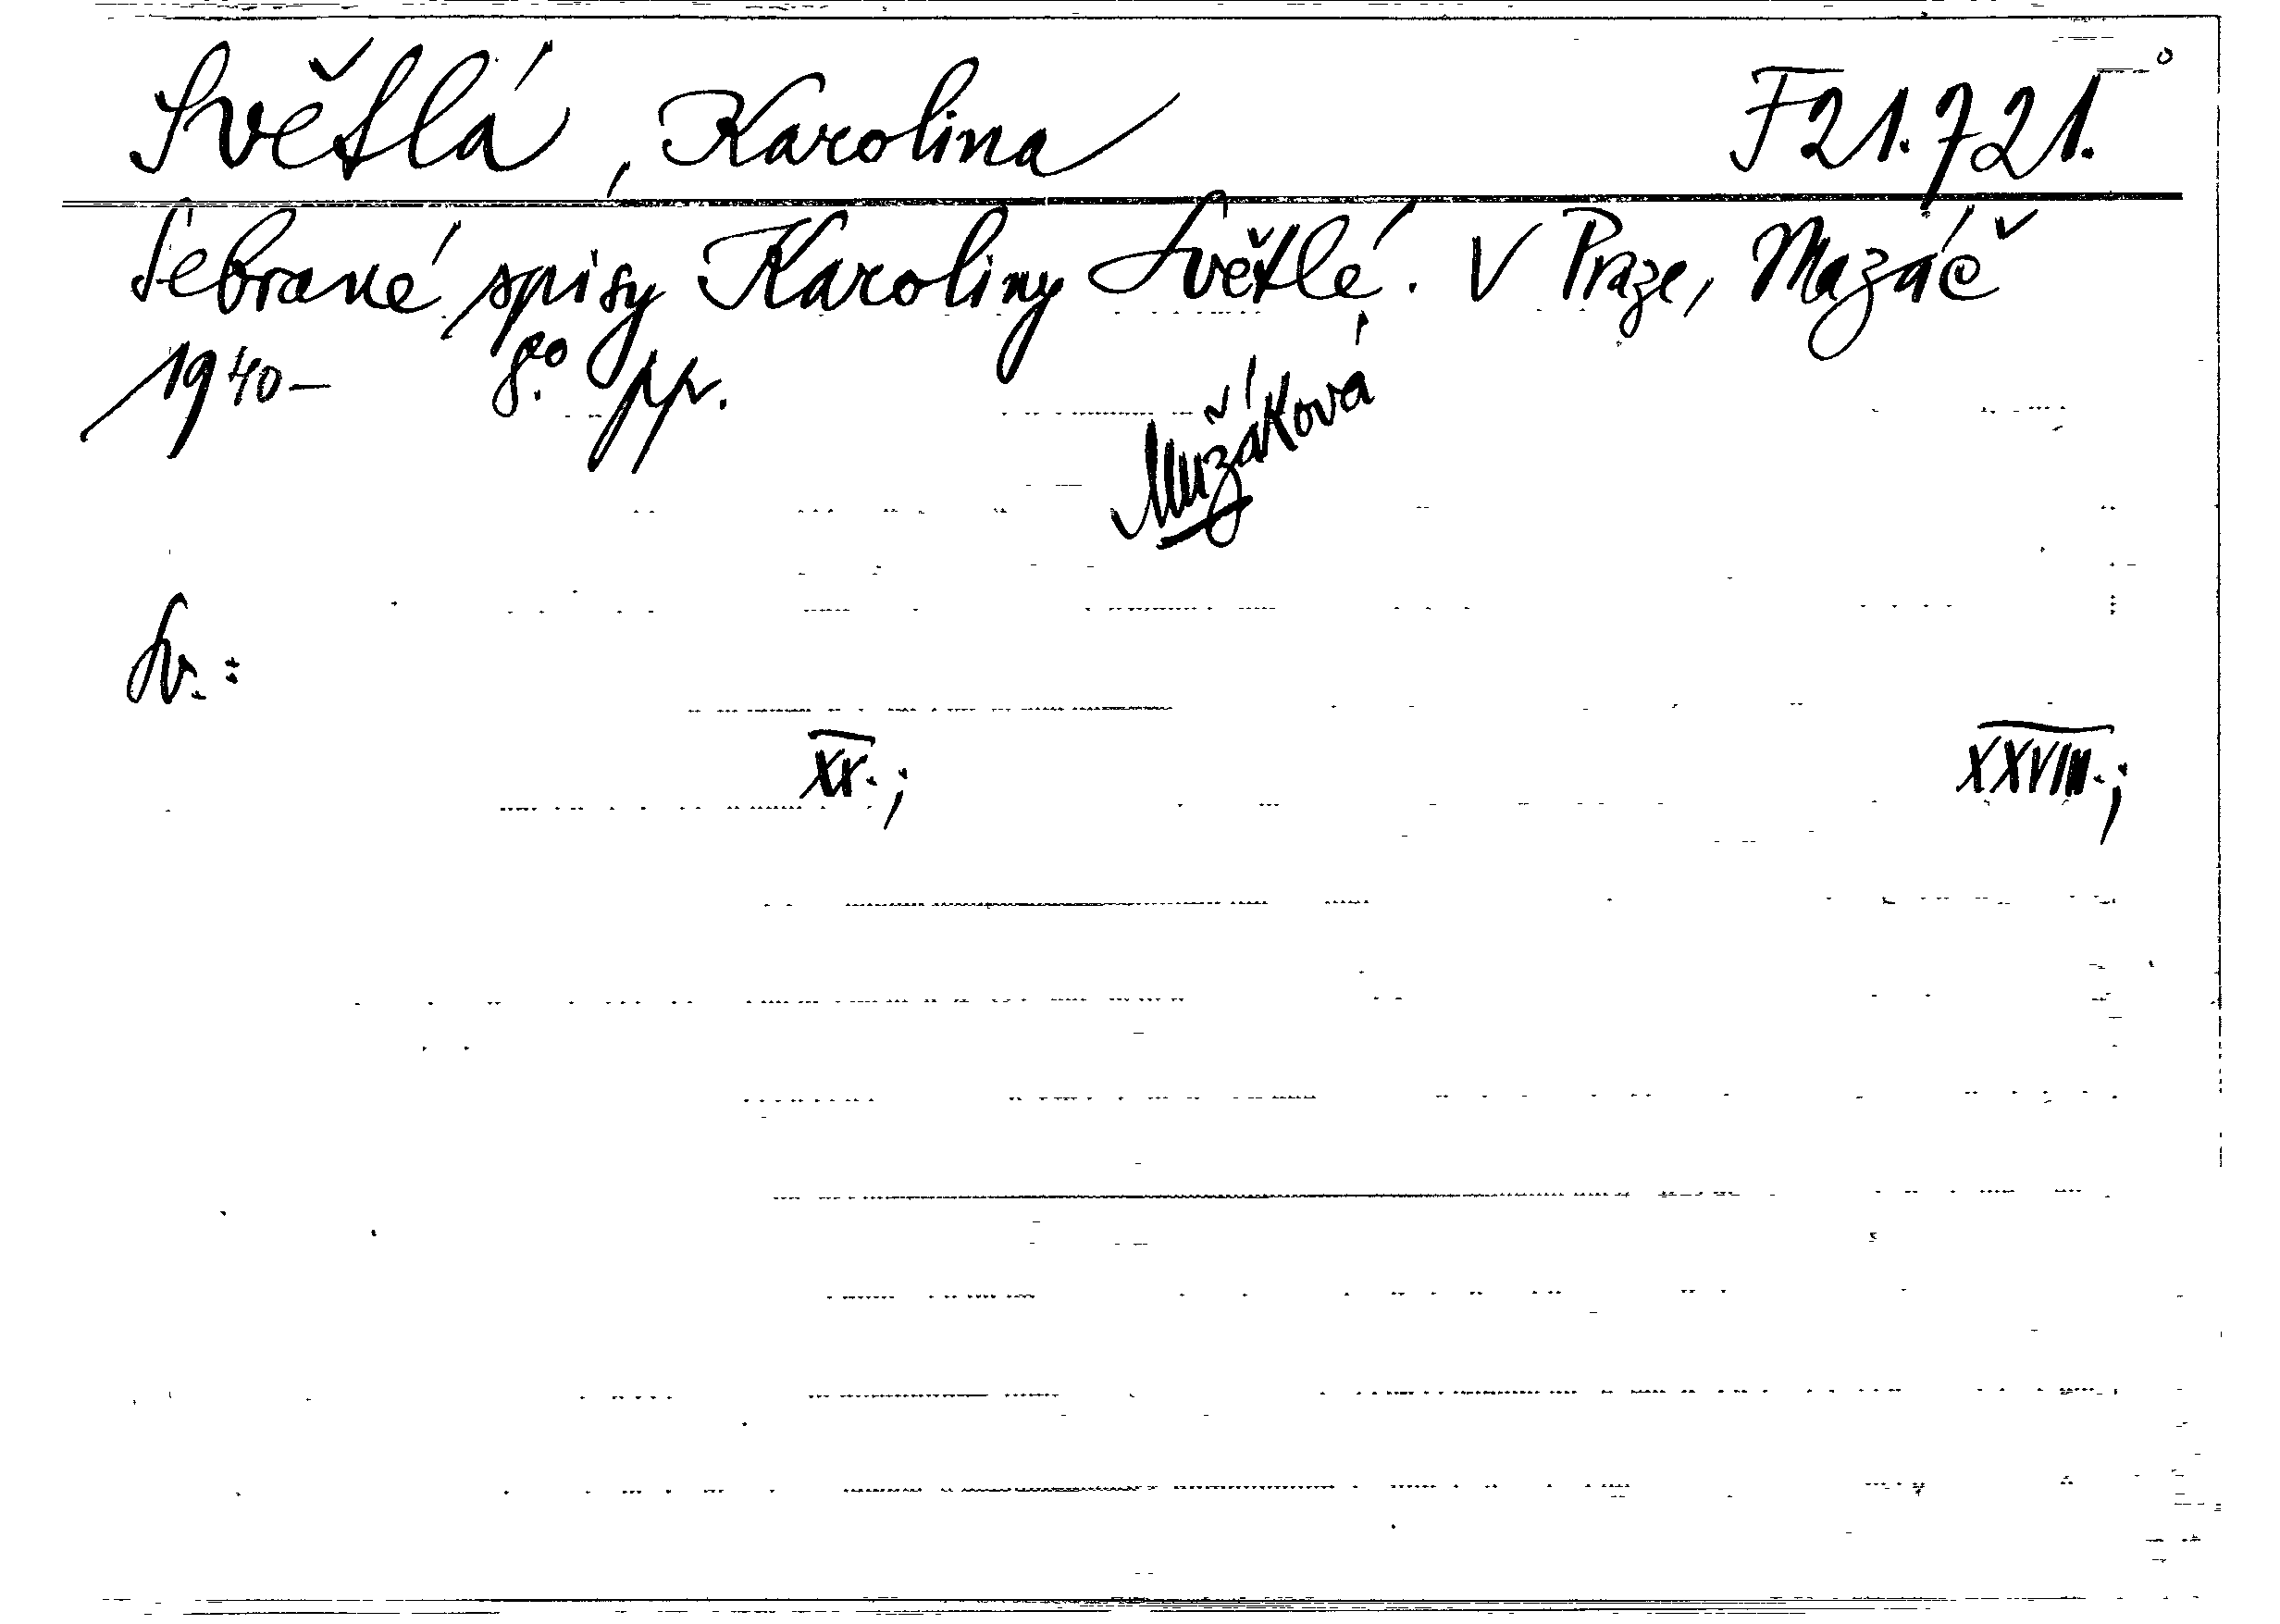 Světlá, Karolina F 21.721.
Sebrané spisy Karoliny Světlé. V Praze, Mazáč
1940– 8.° pp.
Mužáková
Sv.:
XX.; XXVIII.;